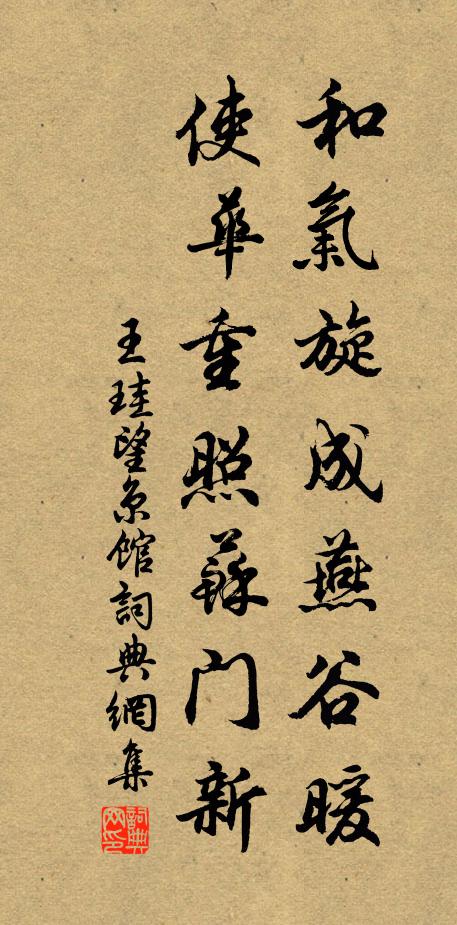 和氣旋成燕谷暖
使華重照蘇门新
王珪望京館詞典網集
詞典网印